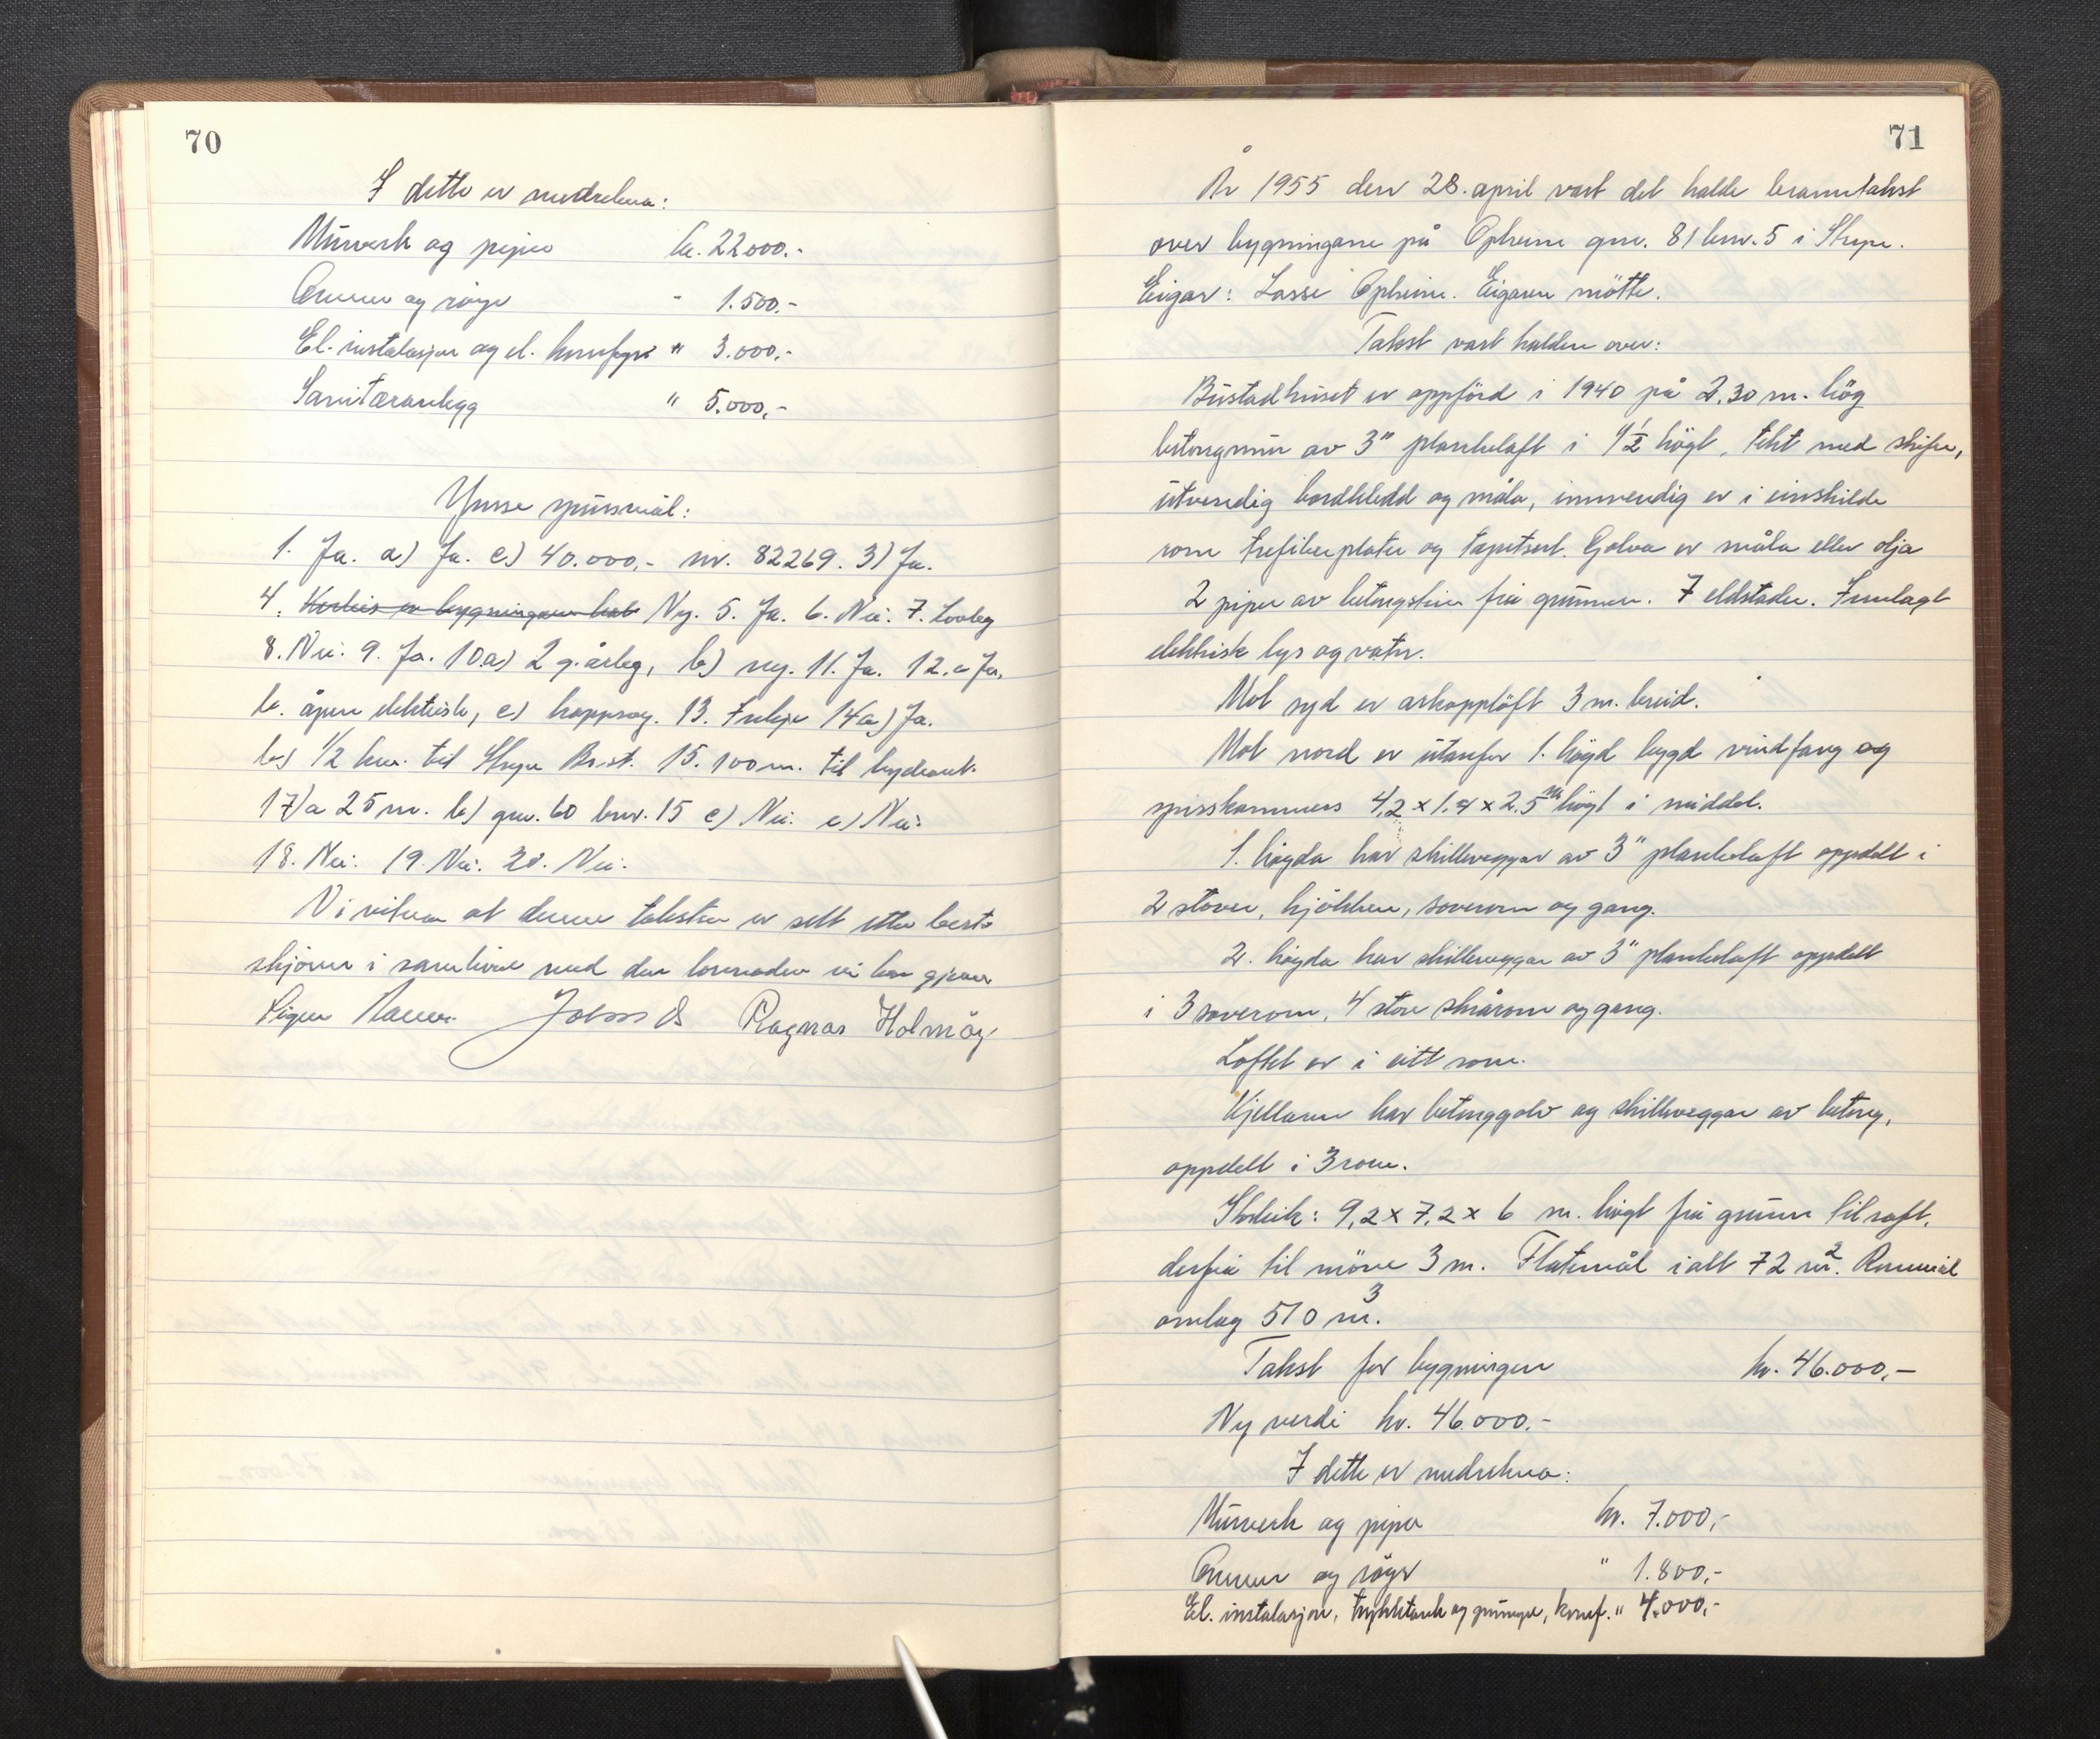 70
I dette er medrekna:
Murverk og piper kr. 22000.-
Omnar og røyr " 1.500,-
El. instalasjon og el. komfyr " 3.000,-
Sanitæranlegg " 5.000,-
Ymse spursmål:
1. Ja. a) Ja. c) 40.000,- nr. 82269. 3) Ja.
4. Korleis er bygningane Ny. 5. Ja. 6. Nei. 7. Lovleg
8. Nei. 9. Ja. 10a) 2 g. årleg, b) nej. 11. Ja. 12. a Ja.
b. åpen elektrisk, c) kappsag. 13. 14a) Ja.
b) 1/2 km. til Stryn Br.st. 15. 100 m. til hydrant.
17)a 25 m. b) gnr. 60 bnr. 15 c) Nei. e) Nei.
18. Nei. 19. Nei. 20. Nei.
Vi vitnar at denne taksten er sett etter beste
skjønn i samhøve med den lovnaden vi har gjeve
Ragnar Holmøy
71
År 1955 den 28. april vart det halde branntakst
over bygningane på Opheim gnr. 81 bnr. 5 i Stryn.
Eigar: Lasse Opheim. Eigaren møtte.
Takst vart halden over:
Bustadhuset er oppförd i 1940 på 2,30 m. hög
betongmur av 3" plankelaft i 1 1/2 högt, tekt med skifer,
utvendig bordkledd og måla, innvendig er i einskilde
rom trefiberplater og tapetsert. Golva er måla eller olja
2 piper av betongstein frå grunnen. 7 eldstader. Innlagt
elektrisk lys og vatn.
Mot syd er arkopplöft 3 m. breid.
Mot nord er utanfor 1. högd bygd vindfang og
spisskammers 4,2 x 1,4 x 2,5 m högt i middel.
1. högda har skilleveggar av 3" plankelaft oppdelt i
2 stover, kjökken, soverom og gang.
2. högda har skilleveggar av 3" plankelaft oppdelt
i 3 soverom, 4 store skårom og gang.
Loftet er i eitt rom.
Kjellaren har betonggolv og skilleveggar av betong,
oppdelt i 3 rom.
Storleik: 9,2 x 7,2 x 6 m. högt frå grunn til raft,
derfrå til möne 3 m. Flatemål i alt 72 m². Rommål
omlag 510 m³.
Takst for bygningen kr. 46.000,-
Ny verdi kr. 46.000.-
I dette er medrekna:
Murverk og piper kr. 7.000,-
Omnar og røyr " 1.800,-
El. instalasjon, trykktank og pumpe, komf. " 4.000,-